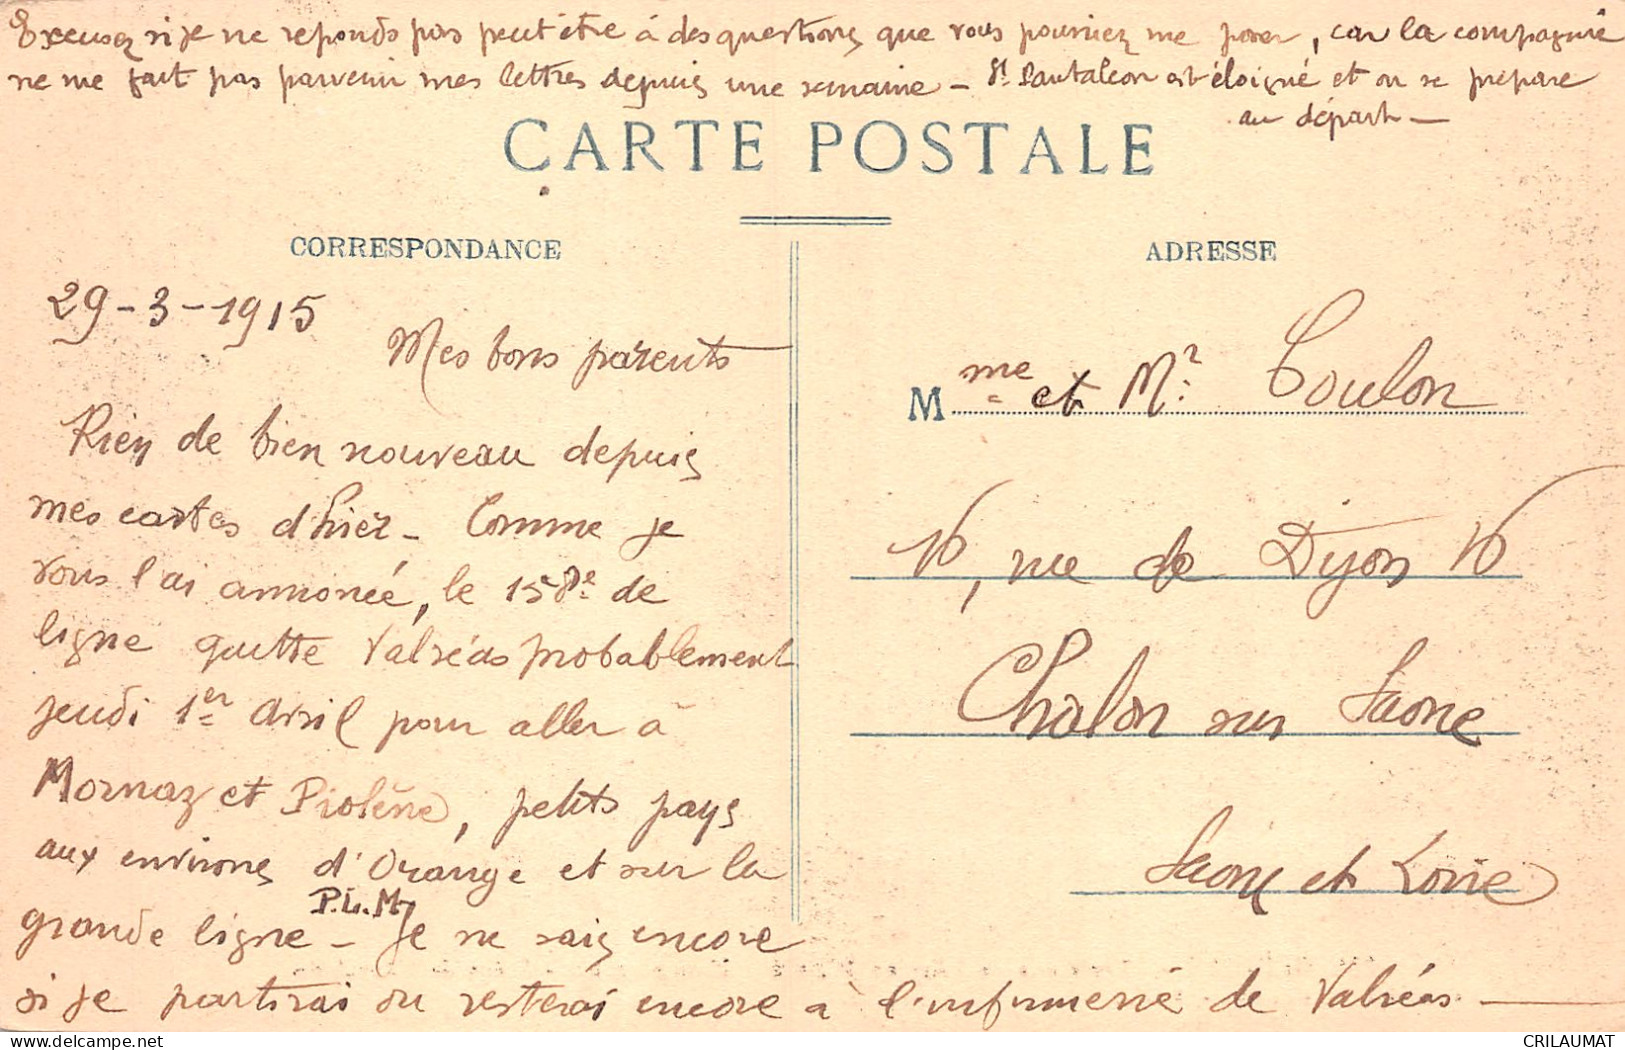 Excusez si je ne reponds pas peut être à des questions que vous pourriez me poser, car la compagnie
ne me fait pas parvenir mes lettres depuis une semaine – St. Pantaléon est éloigné et on se prépare
au départ –
CARTE POSTALE
CORRESPONDANCE
ADRESSE
29-3-1915
Mes bons parents
Rien de bien nouveau depuis
mes cartes d'hier – Comme je
vous l'ai annoncé, le 158e de
ligne quitte Valréas probablement
jeudi 1er Avril pour aller à
Mornaz et Piolène, petits pays
aux environs d'Orange et sur la
grande ligne P.L.M – Je ne sais encore
si je partirai ou resterai encore à l'infirmerie de Valréas –
Mme et Mr. Coulon
16, rue de Dijon 16
Chalon sur Saone
Saone et Loire
CRILAUMAT